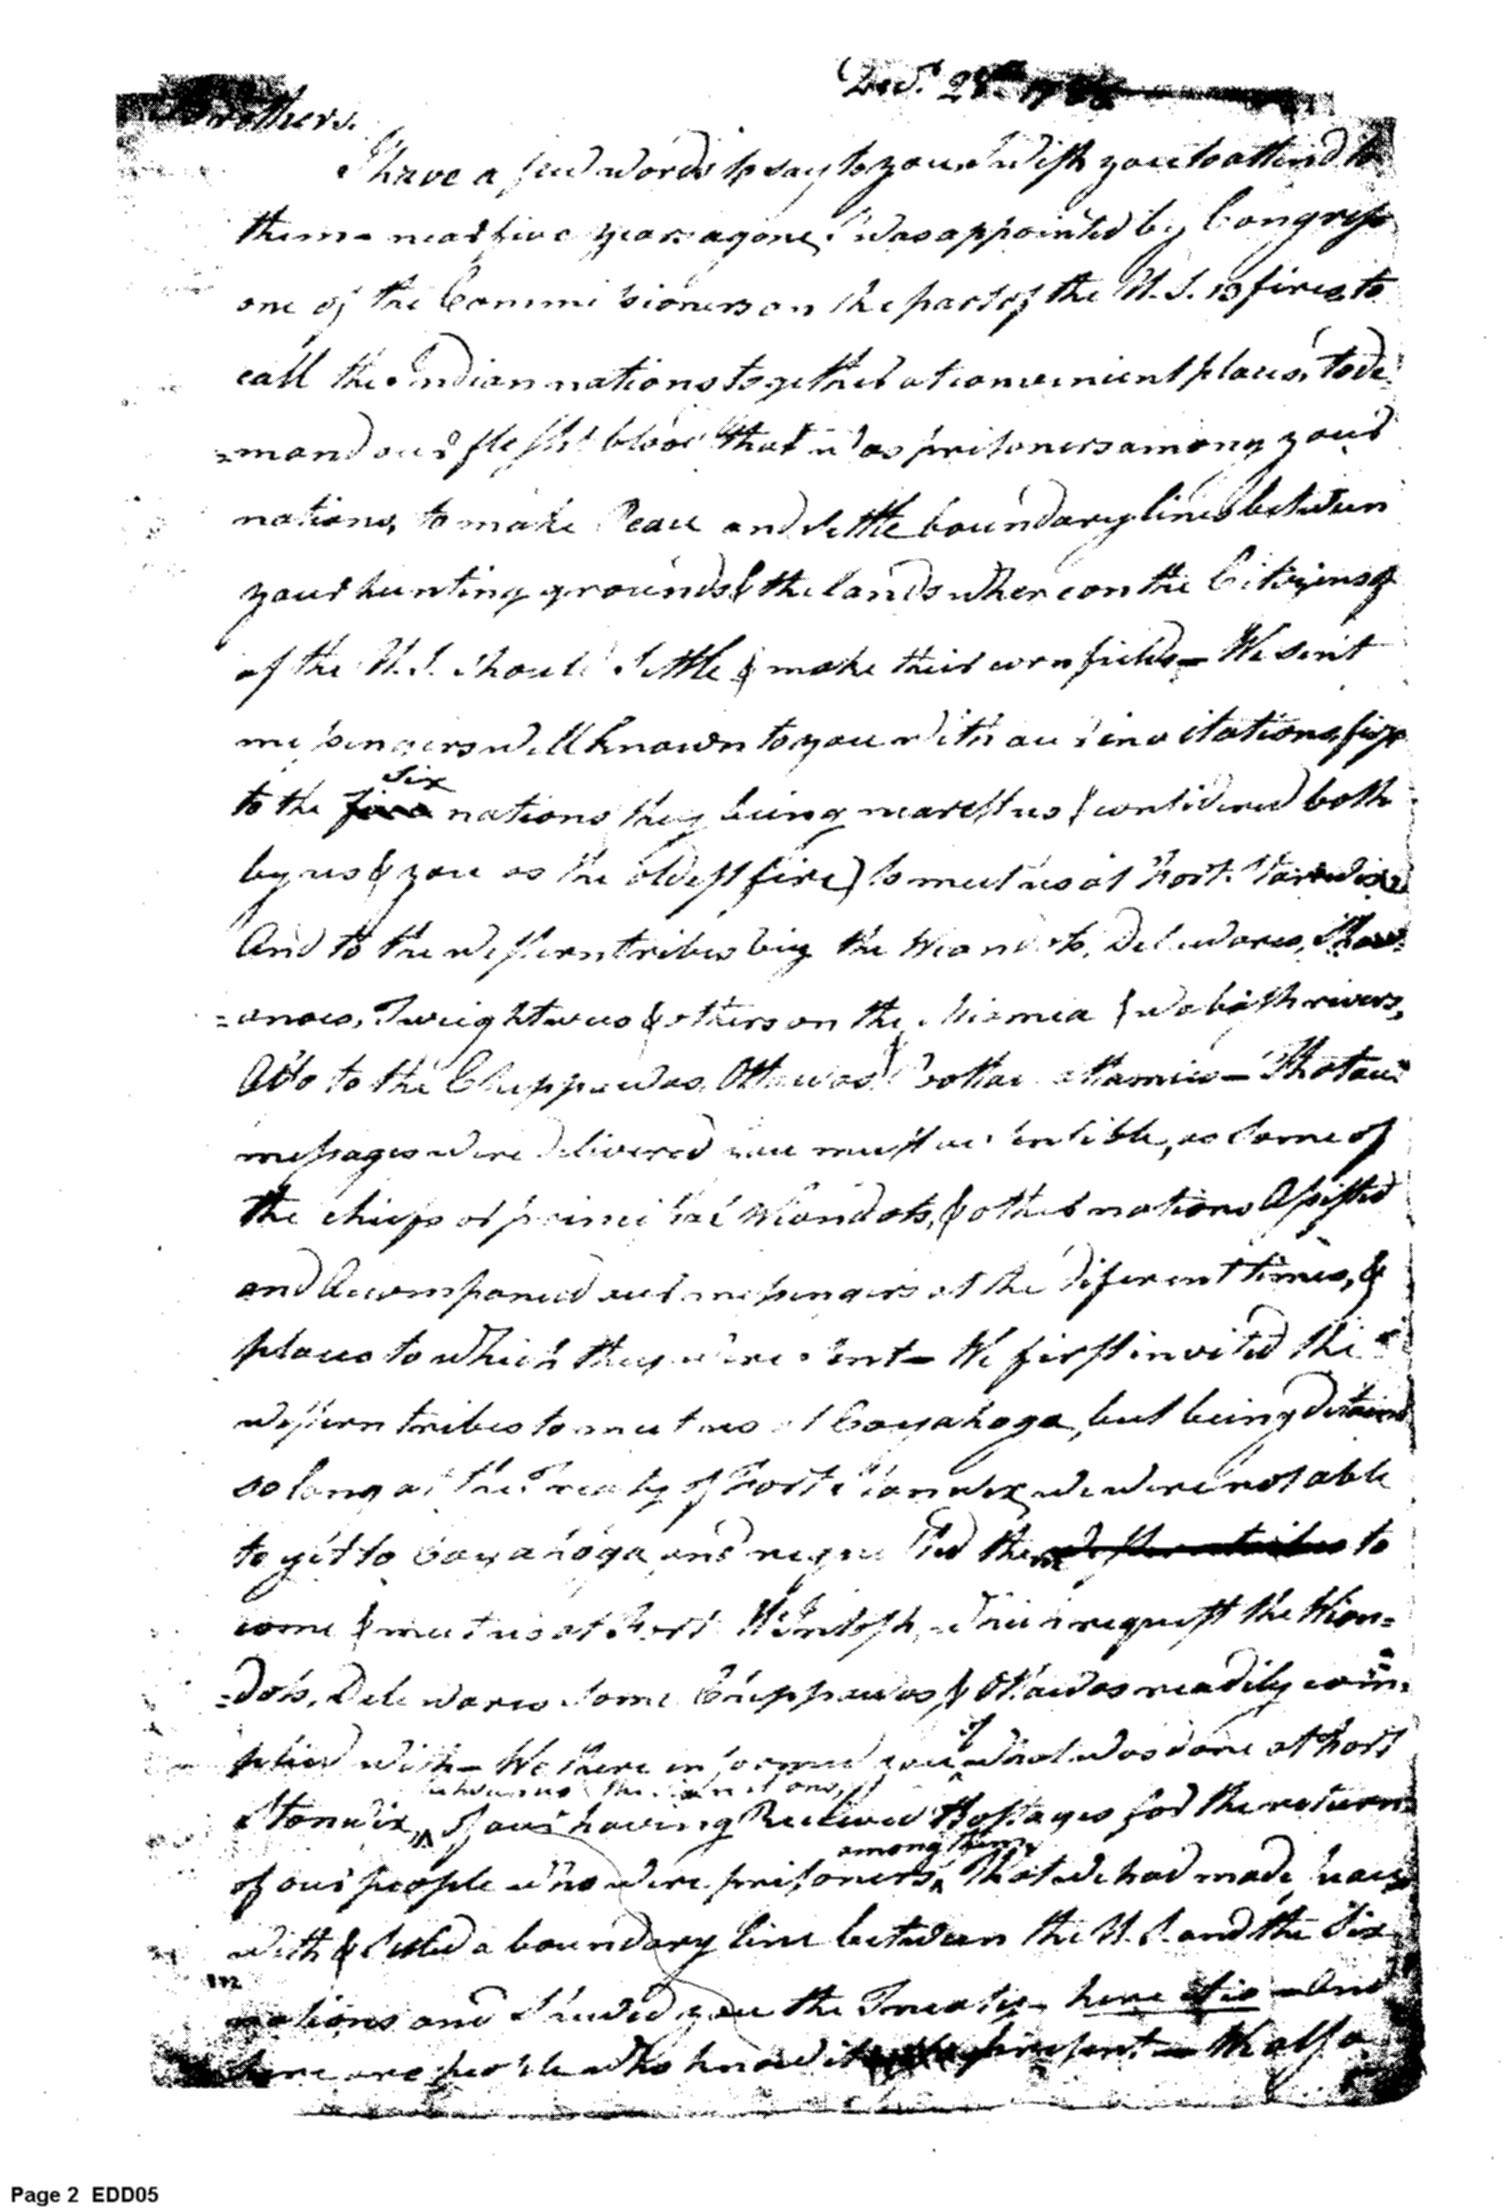 Decr. 28th 1788
Brothers.
I have a few words to say to you & wish you to attend to
them - near five years agone, I was appointed by Congress
one of the Commissioners on the part of the U.S. 13 fires to
call the Indian nations together at convenient places, to de
=mand our flesh & blood that was prisoners among your
nations, to make Peace and settle boundary lines between
your hunting grounds & the lands whereon the Citizens of
of the U.S. should settle & make their corn fields - We sent
messengers well known to you with our invitations, first
to the five six nations they being nearest us & considered both
by us & you as the oldest fire) to meet us at Fort Stanwix
And to the western tribes viz the Wiandots, Delewares, Shaw
=anoes, Twightwees & others on the Miamia & Wabash rivers,
Also to the Chippawas, Ottawas & Pottawattamies - That our
messages were delivered you must be sensible, as some of
the chiefs of principal Wiandots, & other nations Assisted
and Accompanied our messengers at the diferent times, &
places to which they were sent - We first invited the
western tribes to meet us at Cayahoga, but being detained
so long at the Treaty of Fort Stanwix, we were not able
to git to Cayahoga and requested them western tribes to
come & meet us at Fort McIntosh, which request the Wian=
=dots, Delewares some Chippawas & Ottawas readily com
plied with - We there informed you of what was done at Fort
Stanwix, of our having Received Hostages for the return
of our people who were prisoners among them, That we had made peace
with & settled a boundary line between the U.S. and the Six
nations and shewed you the Treaty - here it is - And
here are people who know it present - We also
Page 2 EDD05